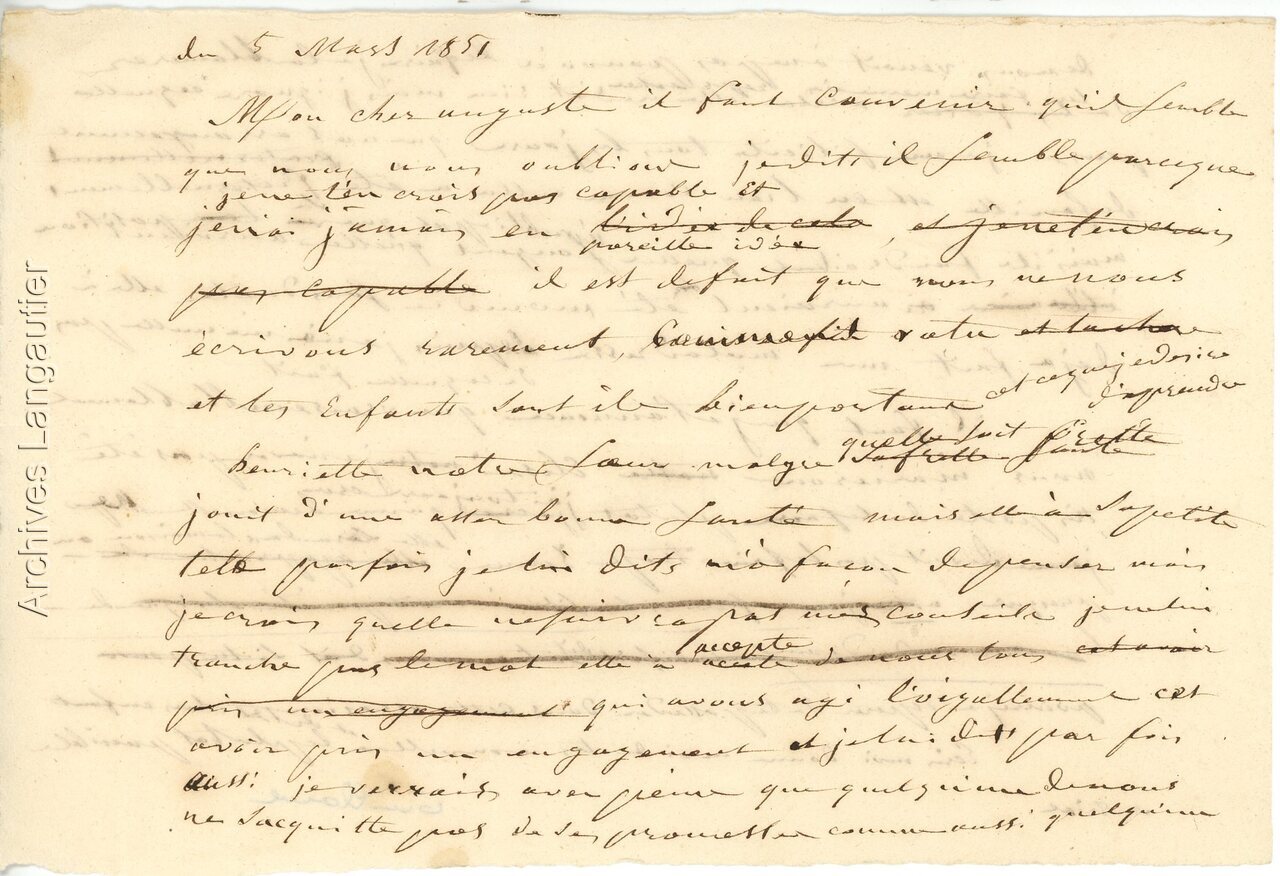 du 5 Mars 1851
Mon cher auguste il faut convenir qu'il semble
que nous nous oublions je dits il semble parceque
je ne t'en crois pas capable et
je n'ai jamais eu l'idée de cela, et je ne t'en crois
pareille idée
pas capable il est de fait que nous ne nous
écrivons rarement, votre et ta chere
et tes Enfants sont ils bien portans et ce que je desire
d'aprendre
quelle soit frelle
henriette notre sœur malgre sa frelle santé
jouit d'une assez bonne santé mais elle à sa petite
tette parfois je lui dits m'a façon de penser mais
je crois quelle ne suivra pas mes conseils je ne lui
tranche pas le mot elle à accepte de nous tous c'et avoir
accepte
pris un engagement qui avons agi loigallement c'et
avoir pris un engagement et je lui dits par fois
aussi je verrais avec pienne que quelqu'un de nous
ne sacquitte pas de ses promesses comme aussi quelqu'un
Archives Langautier